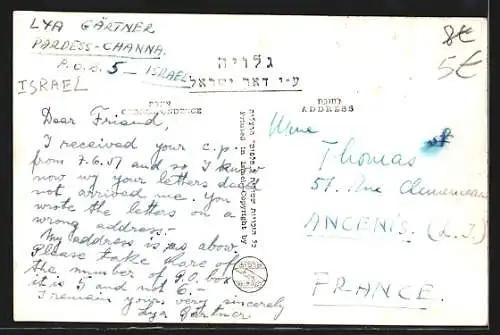 LYA GÄRTNER
PARDESS-CHANNA.
P.O.B. 5 - ISRAEL
ISRAEL
8€
5€
גלויה
ע-י דאר ישראל
CORRESPONDENCE
ADDRESS
Dear Friend,
I received your c.p.
from 7.6.51 and so I know
now wy your letters does
not arrived me. You
wrote the letters on a
wrong address.-
My address is as abow.
Please take share of
the number of P.O. box
it is 5 and not 6.-
I remain yours very sincerely
Lya Gärtner
Printed in Israel Copyright by
Mme
Thomas
51. Rue Clemenceau
ANCENIS. (L.I)
FRANCE.